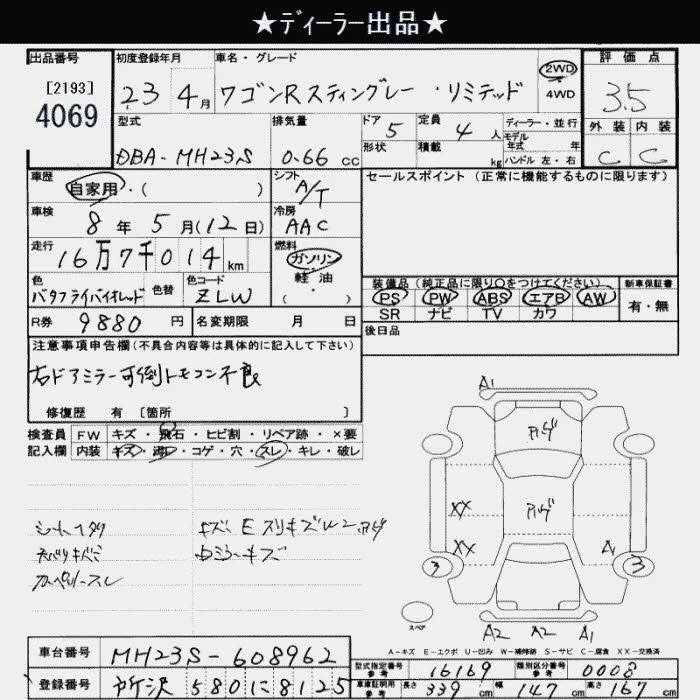 ★ディーラー出品★
出品番号
[2193]
4069
初度登録年月
23年4月
車名・グレード
ワゴンRスティングレー・リミテッド
2WD
4WD
評価点
3.5
型式
DBA-MH23S
排気量
0.66 cc
ドア 5
形状
定員 4 人
積載 kg
ディーラー・並行
モデル年式 年
ハンドル 左・右
外装 内装
C C
車歴
自家用・( )
シフト
A/T
セールスポイント(正常に機能するものに限ります)
車検
8年5月(12日)
冷房
AAC
走行
16万7千014km
燃料
ガソリン
軽・油
( ・ )
色
バタフライバイオレッド
色替
色コード
ZLW
装備品(純正品に限り○をつけてください) 新車保証書
PS PW ABS エアB AW
SR ナビ TV カワ
有・無
R券 9880円 名変期限 月 日
後日品
注意事項申告欄(不具合内容等は具体的に記入して下さい)
右ドアミラー可倒トモコン不良
修復歴 有〔箇所 〕
検査員 FW キズ・飛石・ヒビ割・リペア跡・×要
記入欄 内装 キズ・汚レ・コゲ・穴・スレ・キレ・破レ
A1
アゲ
アゲ
XX
XX
A
3
3
スペア
A2 X2 A1
A-キズ E-エクボ U-凹み W-補修跡 S-サビ C-腐食 XX-交換済
車台番号 MH23S-608962
登録番号 所沢 580 に 8125
型式指定番号 参考 16169 類別区分番号 参考 0008
車庫証明用 参考 長さ 339 cm 幅 147 cm 高さ 167 cm